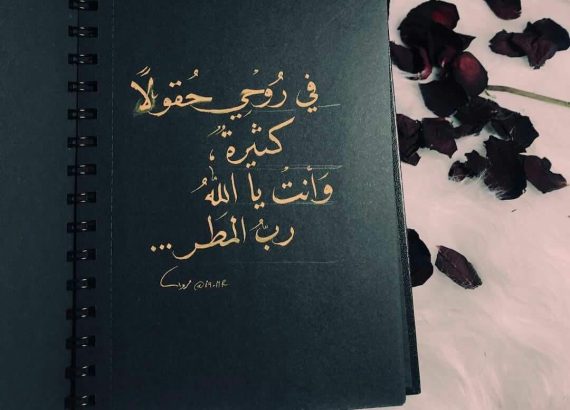 في رُوْحي حُقولًا
كثيرةٌ ،
وَأنتُ يا اللهُ
ربُّ المَطَر ...